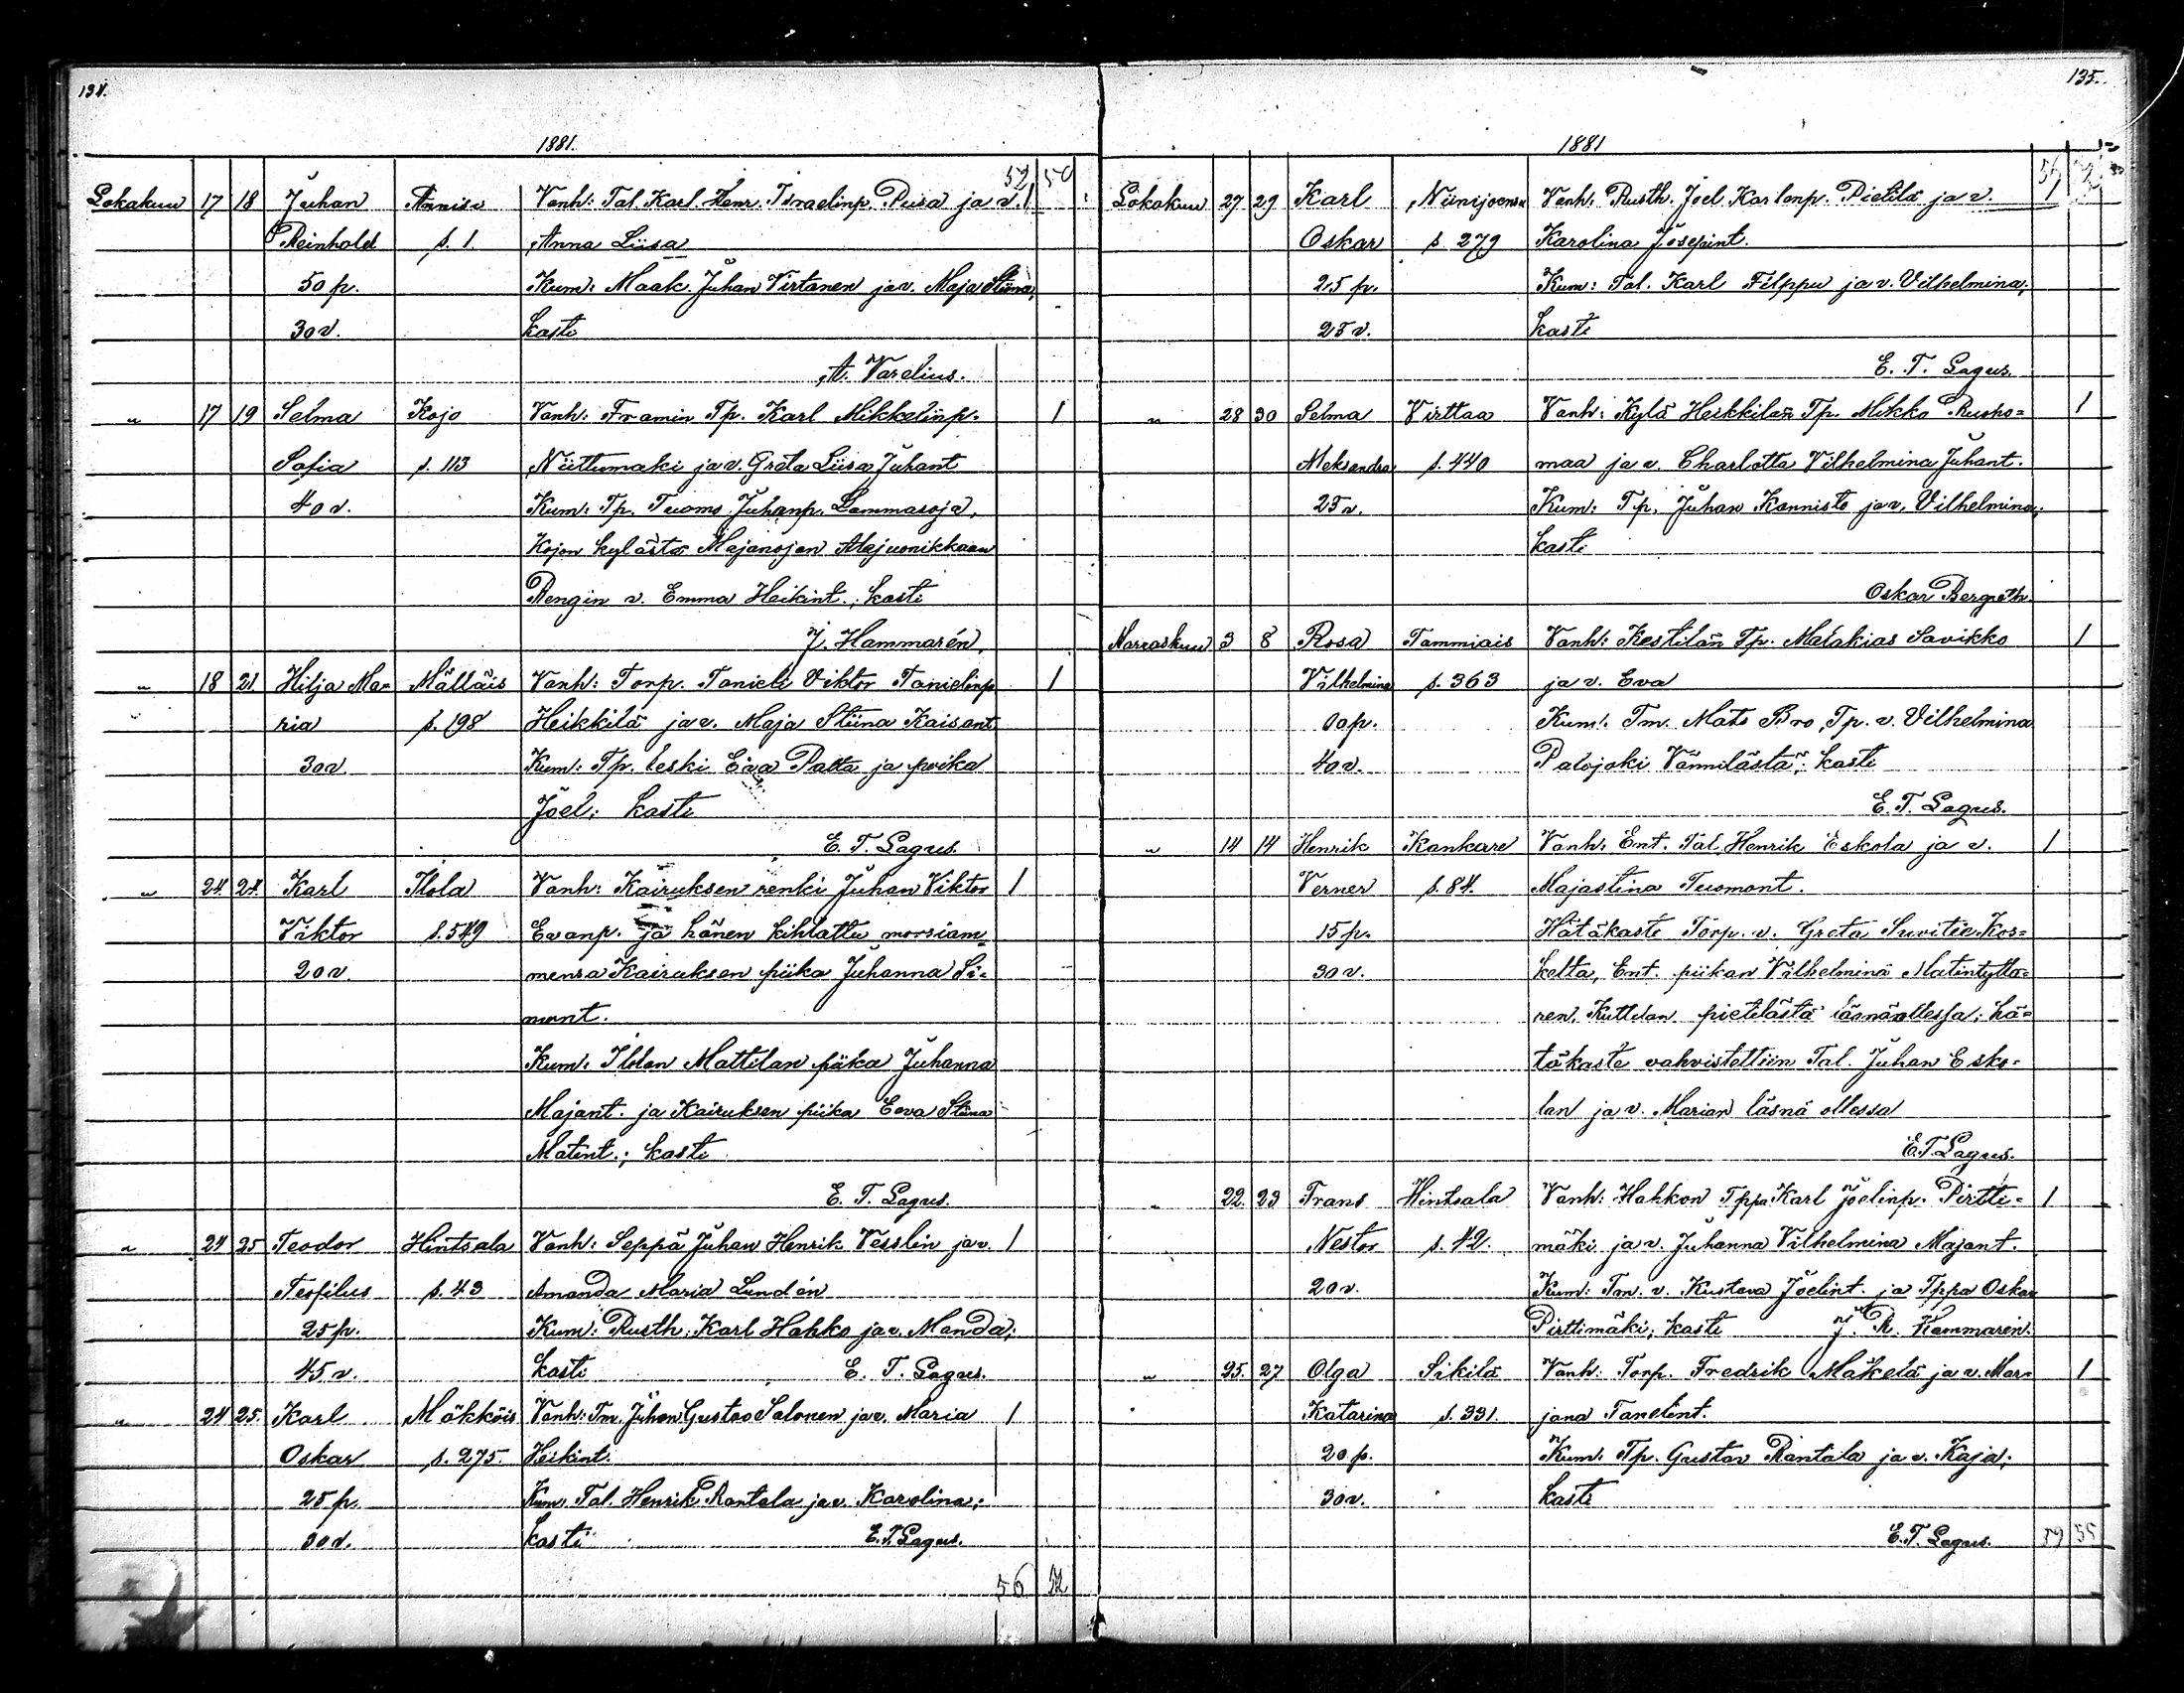 134.
1881.
52 50
Lokakuu 17 18 Juhan Annisu Vanh: Tal. Karl. Henr. Israelinp. Pusa ja v. 1
Reinhold s. 1. Anna Liisa
50 p. Kum: Maak. Juhan Virtanen ja v. Maja Stiina;
30 v. kasti
A. Varelius.
" 17 19 Selma Kojo Vanh: Framin Tp. Karl Mikkelinp. 1
Sofia s. 113 Niittumaki ja v. Greta Liisa Juhant
40 v. Kum: Tp. Tuomo Juhanp. Lammasoja,
Kojon kylästä Majanojan
Rengin v. Emma Heikint.; kasti
J. Hammarén.
" 18 21 Hilja Ma= Mälläis Vanh: Torp. Tanieli Viktor Tanielinp 1
ria s. 198 Heikkilä ja v. Maja Stiina Kaisant.
30 v. Kum: Tp. leski Eva Palta ja poika
Joel; kasti
E. T. Lagus.
" 24. 24. Karl Ilola Vanh: Kairuksen renki Juhan Viktor 1
Viktor s. 549 Evanp. ja hänen kihlattu morsiam=
20 v. mensa Kairuksen piika Juhanna Si=
mont.
Kum: Ilolan Mattilan piika Juhanna
Majant. ja Kairuksen piika Eeva Stiina
Matint.; kasti
E. T. Lagus.
" 24 25 Teodor Hintsala Vanh: Seppä Juhan Henrik Vesslin ja v. 1
Teofilus s. 43 Amanda Maria Lundén
25 p. Kum: Rusth. Karl Hahko ja v. Manda;
45 v. kasti E. T. Lagus.
" 24 25. Karl Mäkköis Vanh: Tm. Juhan Gustav Salonen ja v. Maria 1
Oskar s. 275. Heikint.
25 p. Kum. Tal. Henrik Rantala ja v. Karolina;
30 v. kasti E. T. Lagus.
56 52
135.
1881
56
Lokakuu 27 29 Karl Niinijoensu Vanh. Rusth. Joel Karlonp. Pietilä ja v. 1
Oskar s. 279 Karolina Josepint.
25 p. Kum: Tal. Karl Filppu ja v. Vilhelmina;
25 v. kasti
E. T. Lagus.
" 28 30 Selma Virttaa Vanh: Kylä Heikkilän Tp. Mikko Rusko= 1
Aleksandra s. 440 maa ja v. Charlotta Vilhelmina Juhant.
25 v. Kum: Tp. Juhan Kannisto ja v. Vilhelmina;
kasti
Oskar Bergroth.
Marraskuu 3 8 Rosa Tammiais Vanh: Kestilän Tp. Malakias Savikko 1
Vilhelmina s. 363 ja v. Eva
00 p. Kum: Tm. Mats Bro, Tp. v. Vilhelmina
40 v. Palojoki Vännilästä; kasti
E. T. Lagus.
" 14 14 Henrik Kankare Vanh. Ent. Tal. Henrik Eskola ja v. 1
Verner s. 84. Majastina Tuomont.
15 p. Hätäkaste Torp. v. Greta Suvitie Kos=
30 v. kelta, Ent. piikan Vilhelmina Matintyttä=
ren, Kuttilan pietilästä läsnäollessa; hä=
täkaste vahvistettiin Tal. Juhan Esko=
lan ja v. Marian läsnä ollessa
E. T. Lagus.
" 22. 23 Frans Hintsala Vanh: Hahkon Tppa Karl Joelinp. Pirtti= 1
Nestor s. 42. mäki ja v. Juhanna Vilhelmina Majant.
20 v. Kum: Tm. v. Kustava Joelint. ja Tppa Oskar
Pirttimäki; kasti J. R. Hammarén.
" 25. 27 Olga Sikilä Vanh: Torp. Fredrik Mäkelä ja v. Mar= 1
Katarina s. 331. jana Tanelint.
20 p. Kum. Tp. Gustav Rantala ja v. Kaja;
30 v. kasti
E. T. Lagus. 59 55